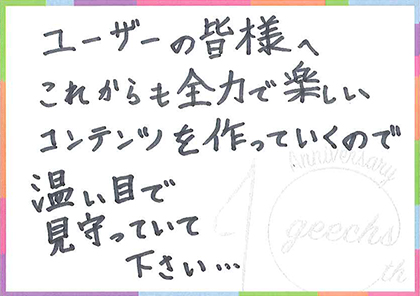 ユーザーの皆様へ
これからも全力で楽しい
コンテンツを作っていくので
温い目で
見守っていて
下さい...
10
Anniversary
geechs
th